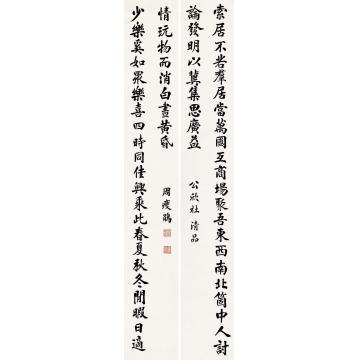 索居不若羣居當萬國互商場聚吾東西南北箇中人討
論發明以冀集思廣益
公欣社清品
少樂奚如眾樂喜四時同佳興乘此春夏秋冬閒暇日適
情玩物而消白晝黃昏
周瘦鵑